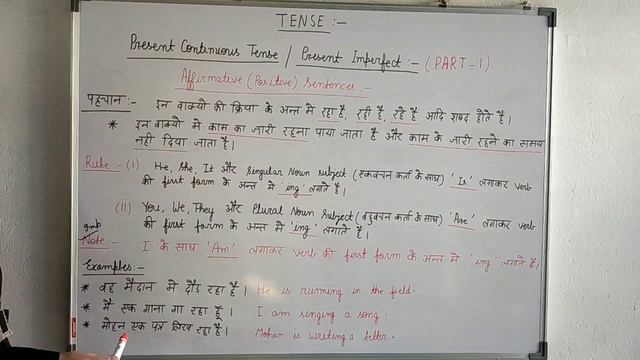 TENSE :-
Present Continuous Tense / Present Imperfect :- (PART-1)
Affirmative (Positive) Sentences :-
पहचान :- इन वाक्यो की क्रिया के अन्त मे रहा है, रही है, रहे है आदि शब्द होते है।
* इन वाक्यो मे काम का जारी रहना पाया जाता है और काम के जारी रहने का समय
नही दिया जाता है।
Rule :- (i) He, She, It और Singular Noun subject (एकवचन कर्ता के साथ) 'Is' लगाकर verb
की first form के अन्त मे 'ing' लगाते है।
(ii) You, We, They और Plural Noun Subject (बहुवचन कर्ता के साथ) 'Are' लगाकर verb
की first form के अन्त मे 'ing' लगाते है।
Imp
Note :- I के साथ 'Am' लगाकर verb की first form के अन्त मे 'ing' लगाते है।
Examples :-
* वह मैदान मे दौड़ रहा है। He is running in the field.
* मै एक गाना गा रहा हूँ। I am singing a song.
* मोहन एक पत्र लिख रहा है। Mohan is writing a letter.